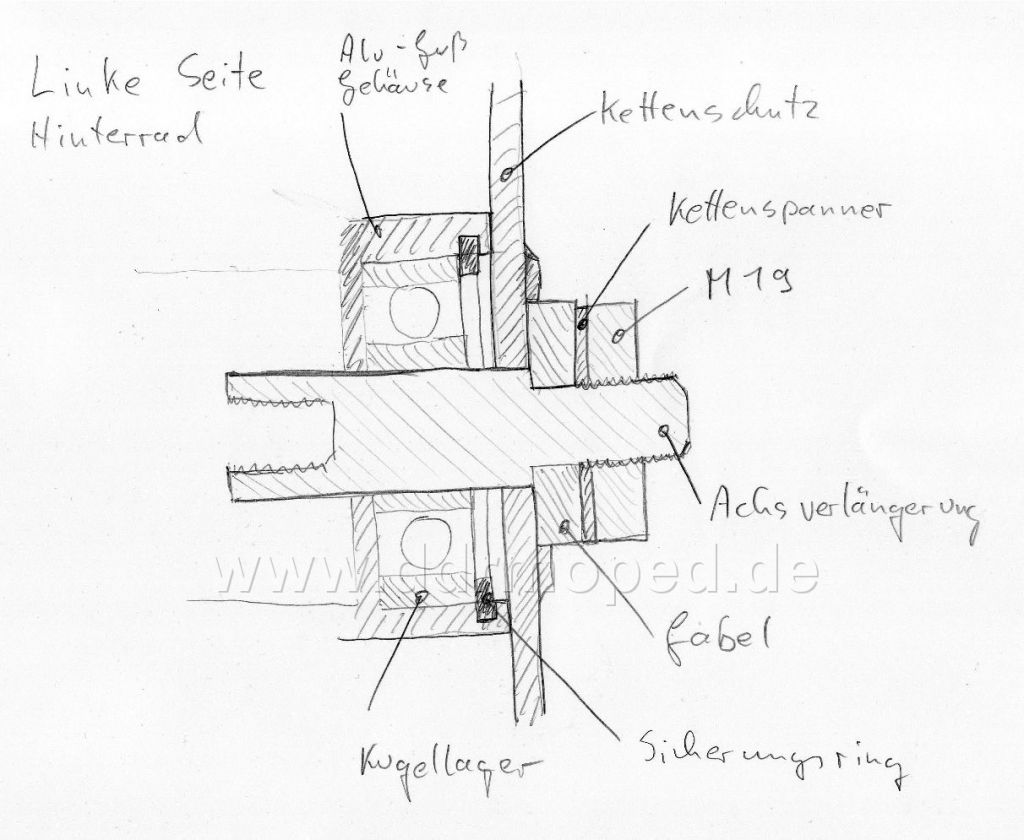 Linke Seite
Hinterrad
Alu-Guß
Gehäuse
Kettenschutz
Kettenspanner
M19
Achsverlängerung
www.ddrmoped.de
Gabel
Kugellager
Sicherungsring